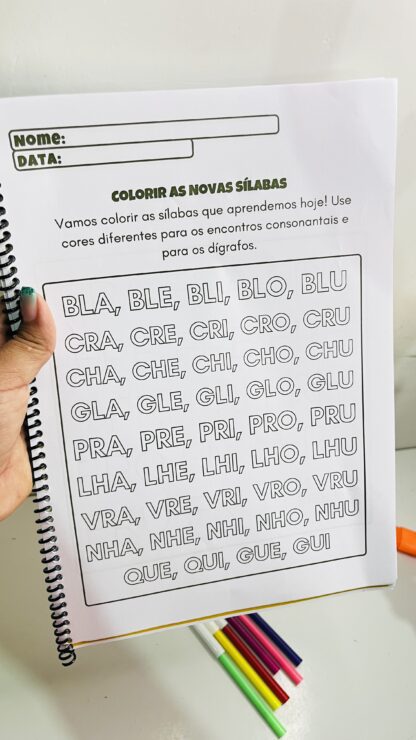 Nome:
DATA:
COLORIR AS NOVAS SÍLABAS
Vamos colorir as sílabas que aprendemos hoje! Use
cores diferentes para os encontros consonantais e
para os dígrafos.
BLA, BLE, BLI, BLO, BLU
CRA, CRE, CRI, CRO, CRU
CHA, CHE, CHI, CHO, CHU
GLA, GLE, GLI, GLO, GLU
PRA, PRE, PRI, PRO, PRU
LHA, LHE, LHI, LHO, LHU
VRA, VRE, VRI, VRO, VRU
NHA, NHE, NHI, NHO, NHU
QUE, QUI, GUE, GUI